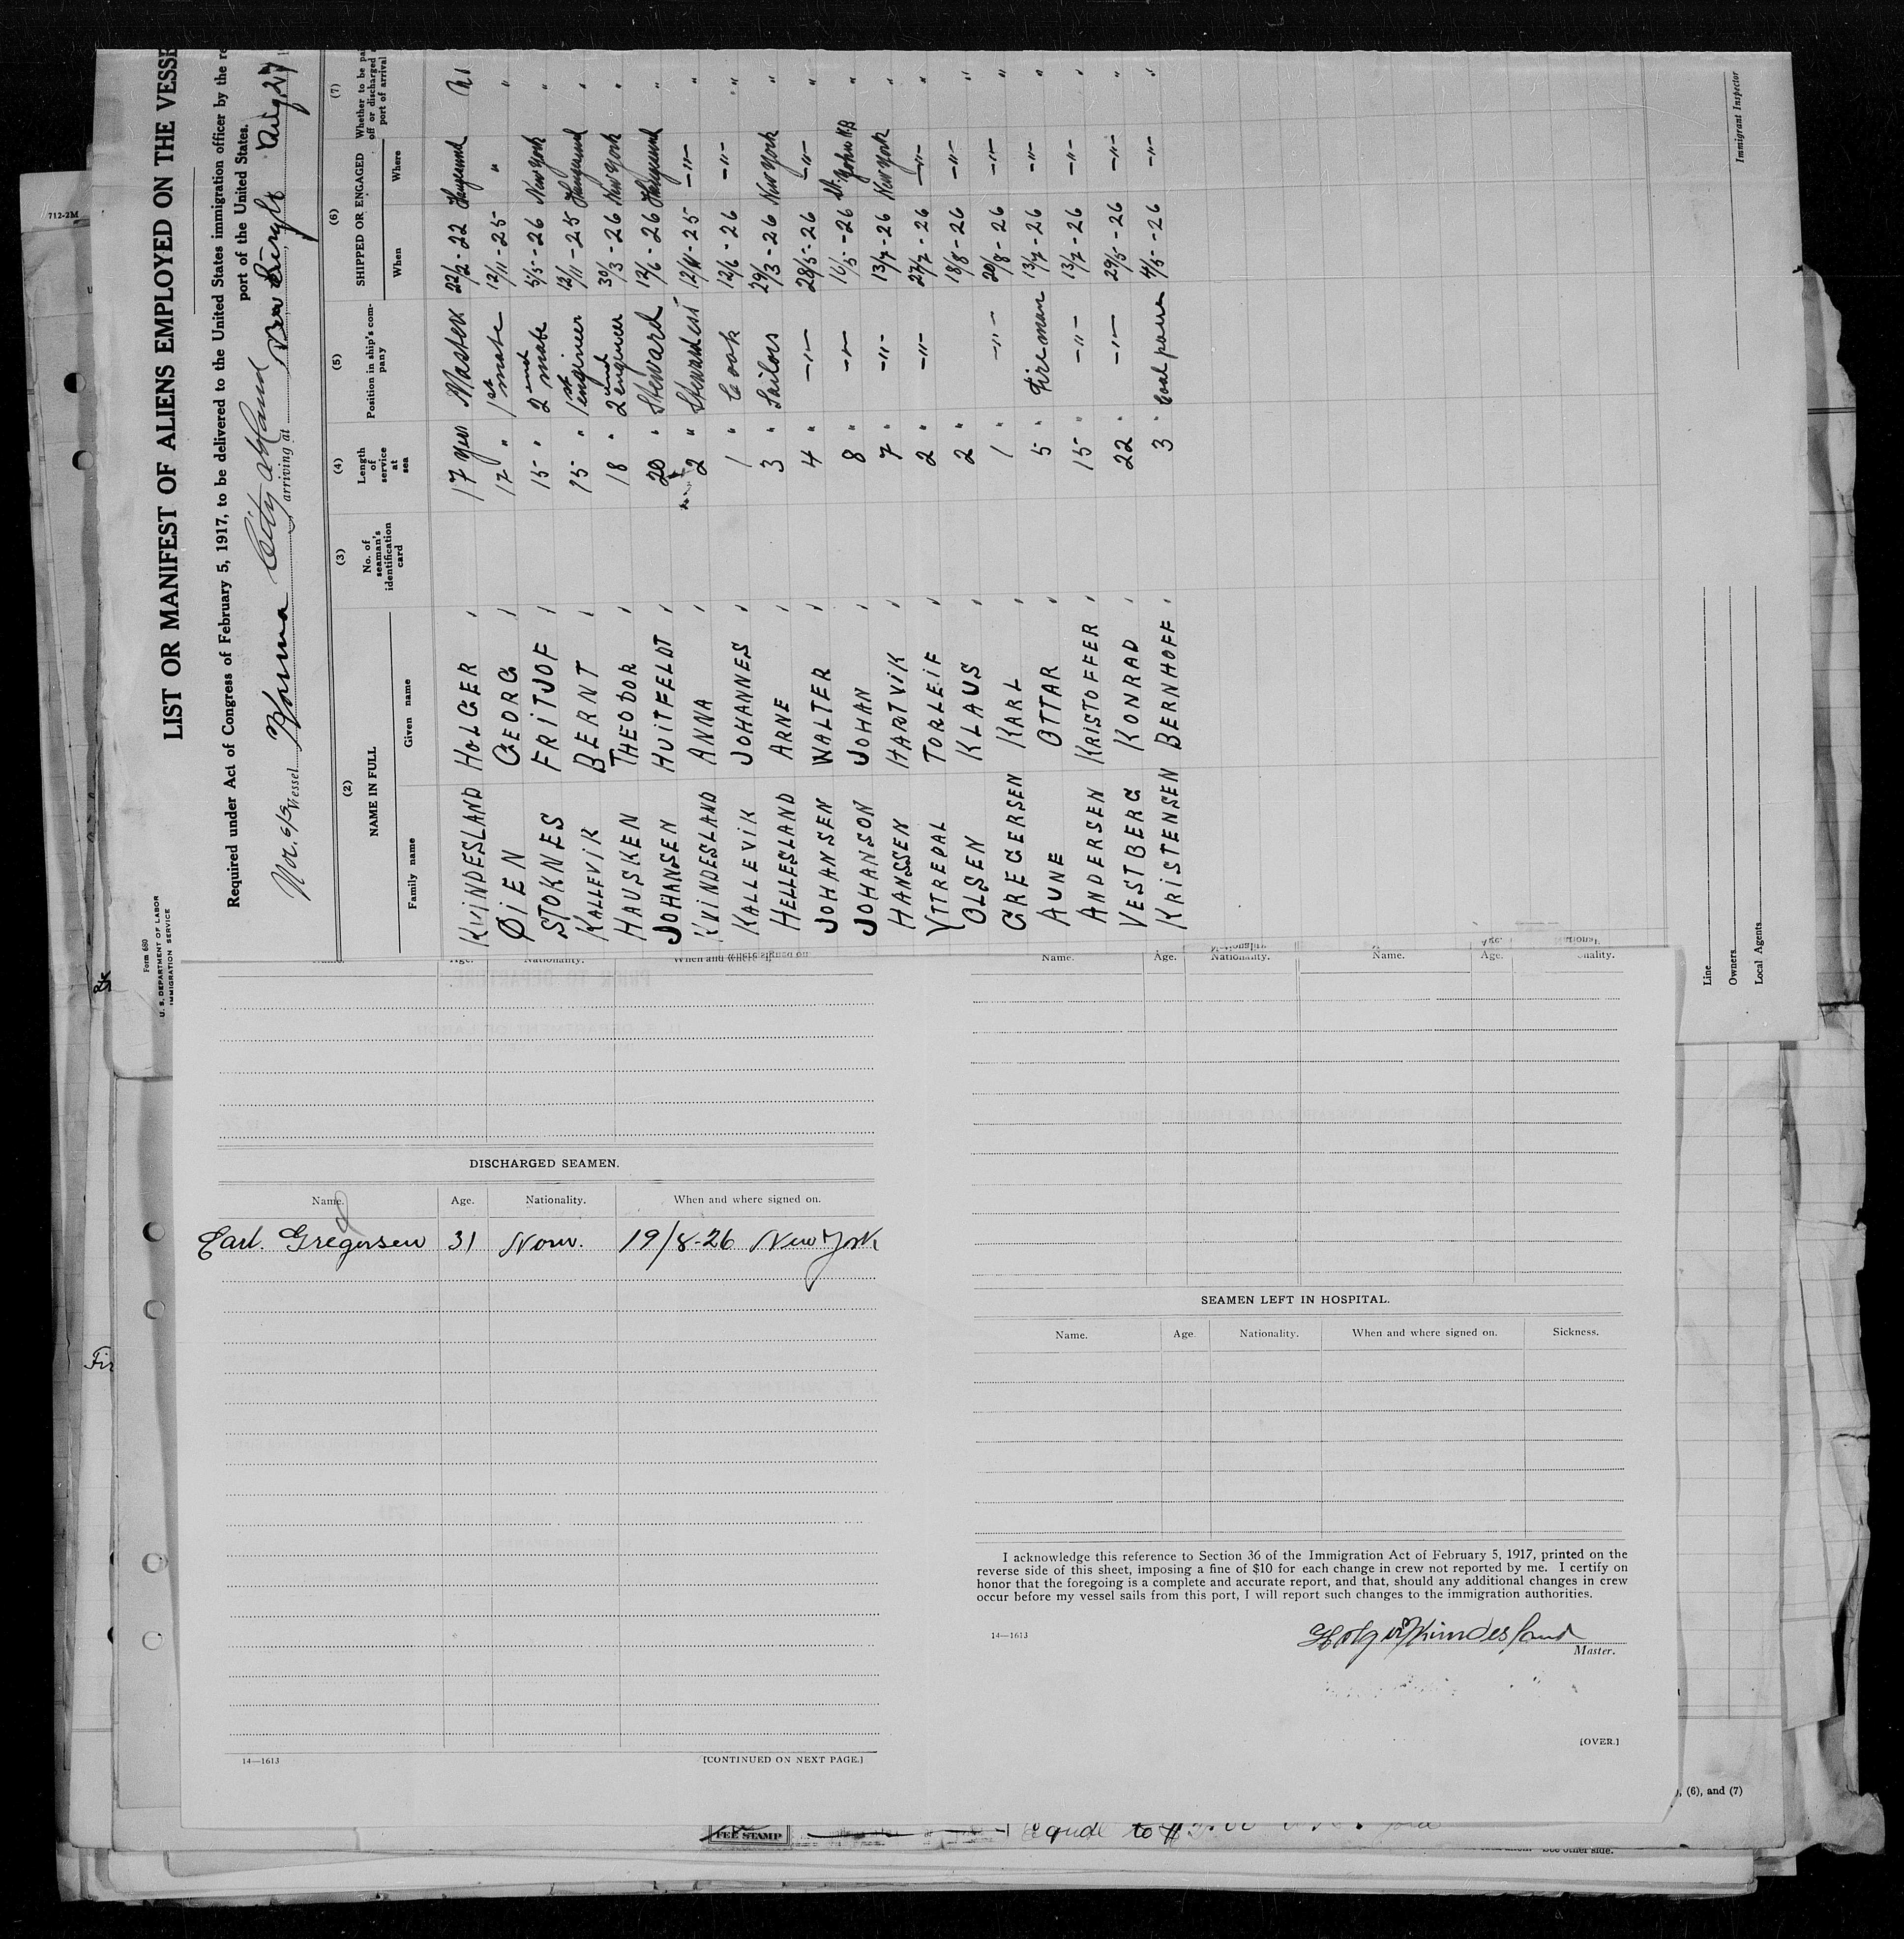 712-2M
Form 680
U. S. DEPARTMENT OF LABOR
IMMIGRATION SERVICE
LIST OR MANIFEST OF ALIENS EMPLOYED ON THE VESSE
Required under Act of Congress of February 5, 1917, to be delivered to the United States immigration officer by the re
port of the United States.
Vessel arriving at Aug. 27
(2) (3) (4) (5) (6) (7)
NAME IN FULL No. of seaman's identification card Length of service at sea Position in ship's company SHIPPED OR ENGAGED Whether to be pa off or discharged port of arrival
Family name Given name When Where
KVINDESLAND HOLGER 17 years Master 22/2-22 Haugesund No
ØIEN GEORG 17 " 1st mate 12/11-25 " "
STOKNES FRITJOF 15 " 2nd mate 5/5-26 New York "
KALLEVIK BERNT 15 " 1st engineer 12/11-25 Haugesund "
HAUSKEN THEODOR 18 " 2nd engineer 30/3-26 New York "
JOHANSEN HUITFELDT 20 " Steward 12/6-26 Haugesund "
KVINDESLAND ANNA 2 " Stewardess 12/11-25 -"- "
KALLEVIK JOHANNES 1 " Cook 12/6-26 -"- "
HELLESLAND ARNE 3 " Sailors 29/3-26 New York "
JOHANSEN WALTER 4 " -"- 28/5-26 -"- "
JOHANSON JOHAN 8 " -"- 16/5-26 St. John N.B "
HANSSEN HARTVIK 7 " -"- 13/7-26 New York "
YTTREDAL TORLEIF 2 " -"- 27/7-26 -"- "
OLSEN KLAUS 2 " 18/8-26 -"- "
GREGERSEN KARL 1 " -"- 20/8-26 -"- "
AUNE OTTAR 5 " Fireman 13/7-26 -"- "
ANDERSEN KRISTOFFER 15 " -"- 13/7-26 -"- "
VESTBERG KONRAD 22 " -"- 29/5-26 -"- "
KRISTENSEN BERNHOFF 3 " 4/5-26 -"- "
Line
Owners
Local Agents
Immigrant Inspector
Name. Age. Nationality. When and where signed on.
DISCHARGED SEAMEN.
Name. Age. Nationality. When and where signed on.
Carl. Gregersen 31 Norw. 19/8-26 New York
14—1613 [CONTINUED ON NEXT PAGE.]
Name. Age. Nationality. Name. Age.
SEAMEN LEFT IN HOSPITAL.
Name. Age. Nationality. When and where signed on. Sickness.
I acknowledge this reference to Section 36 of the Immigration Act of February 5, 1917, printed on the
reverse side of this sheet, imposing a fine of $10 for each change in crew not reported by me. I certify on
honor that the foregoing is a complete and accurate report, and that, should any additional changes in crew
occur before my vessel sails from this port, I will report such changes to the immigration authorities.
14—1613
Holger Kvindesland
Master.
[OVER.]
, (6), and (7)
FEE STAMP
Equal to
See other side.